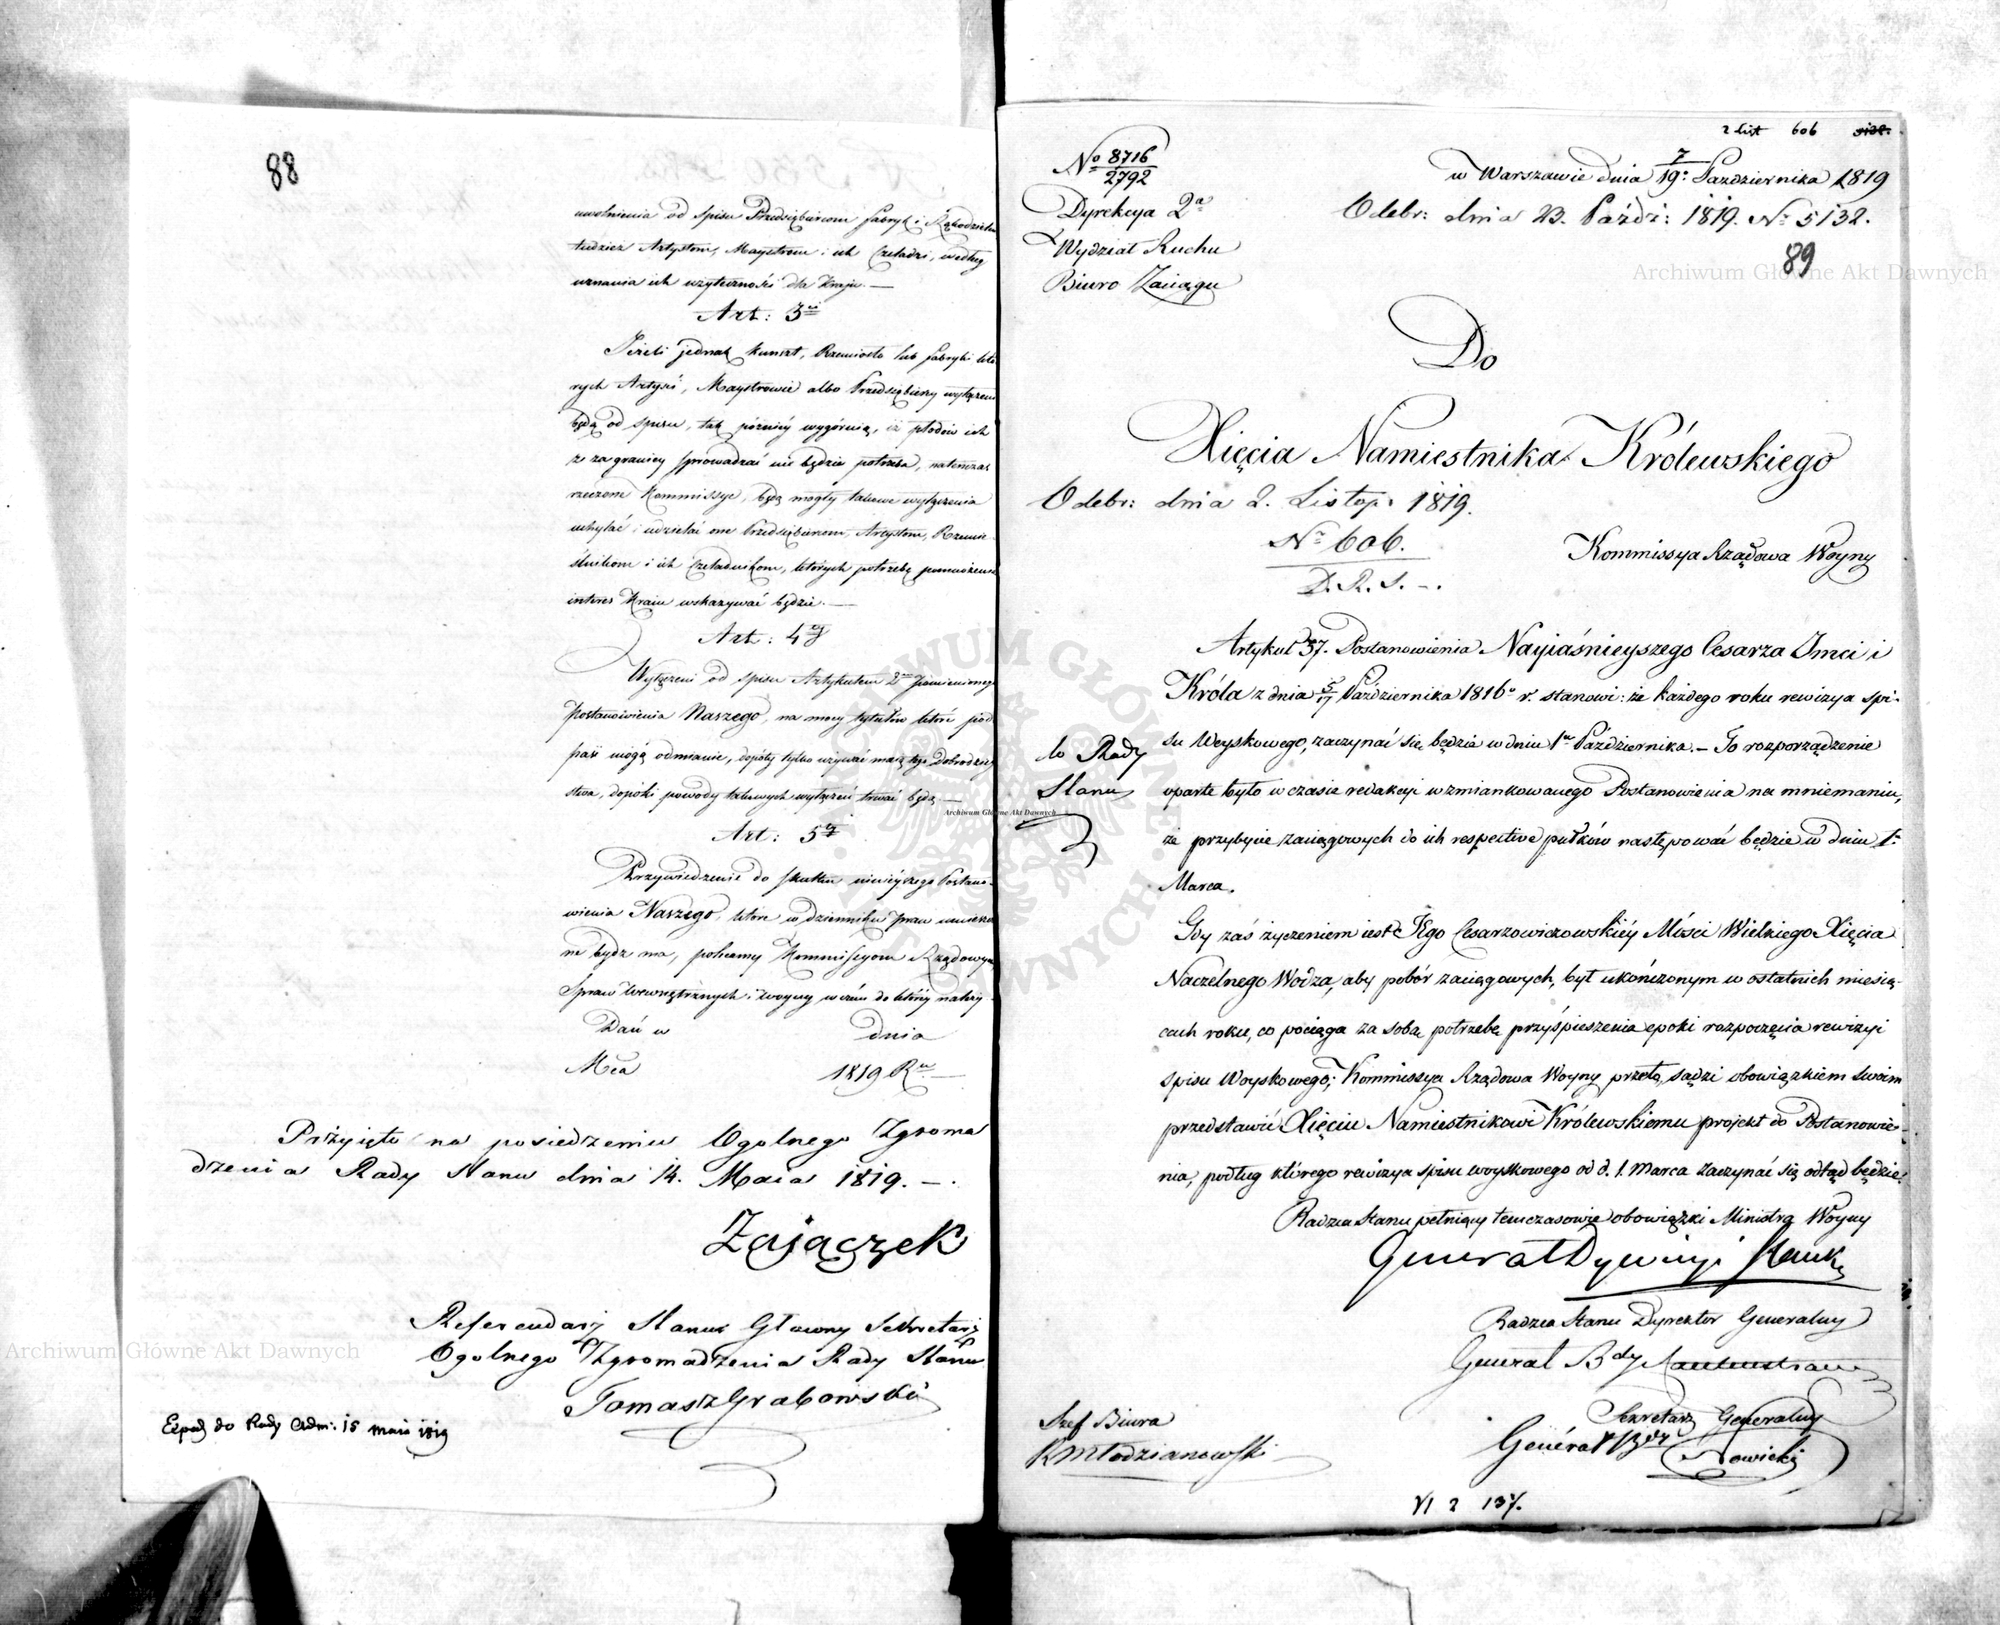 88
uwolnienia od spisu Przedsiębiercom fabryk i Rękodzieln
tudzież Artystom, Maystrom i ich Czeladzi, według
uznania ich użyteczności dla Kraju. —
Art: 3ci
Jeżeli jednak kunszt, Rzemiosło lub fabryki któ
rych Artyści, Maystrowie albo Przedsiębiercy wyłączeni
będą od spisu, tak późniéy wygórują, iż płodów ich
z zagranicy sprowadzać nie będzie potrzeba, natenczas
rzeczone Kommissye, będą mogły takowe wyłączenia
uchylać i udzielać one Przedsiębiercom, Artystom, Rzemie
ślnikom i ich Czeladnikom, których potrzebę pomnożenia
interes Kraiu wskazywać będzie. —
Art: 4ty
Wyłączeni od spisu Artykułem 2m pomienionego
Postanowienia Naszego, na mocy tytułów które pod
paść mogą odmianie, dopóty tylko używać mają tego dobrodziey
stwa, dopóki powody takowych wyłączeń trwać będą. —
Art: 5ty
Przywiedzenie do skutku ninieyszego Postano-
wienia Naszego, które w dzienniku praw umieszczo
ne bydź ma, polecamy Kommissyom Rządowym
Spraw Wewnętrznych i Woyny w czém do któréy należy
Dań w dnia
Mca 1819 Ru —
Przyięto na posiedzeniu Ogolnego Zgroma
dzenia Rady Stanu dnia 14. Maia 1819. —.
Zajączek
Referendarz Stanu Głowny Sekretarz
Ogolnego Zgromadzenia Rady Stanu
Tomasz Grabowski
Exped do Rady Adm: 15 maia 1819
2 List 606
No 8716/2792
w Warszawie dnia 7/19o Października 1819
Dyrekcya 2a
Odebr: dnia 23. Paźdź: 1819. No 5132.
Wydział Ruchu
89
Biuro Zaciągu
Do
Xięcia Namiestnika Królewskiego
Odebr: dnia 2. Listop: 1819.
No 606.
D. R. S. —.
Kommissya Rządowa Woyny
Artykuł 37. Postanowienia Nayiaśnieyszego Cesarza Jmci i
Króla z dnia 5/17 Października 1816o r. stanowi: że każdego roku rewizya spi-
su Woyskowego, zaczynać się będzie w dniu 1m Października. — To rozporządzenie
do Rady
Stanu
oparte było w czasie redakcyi wzmiankowanego Postanowienia na mniemaniu,
że przybycie zaciągowych do ich respective pułków następować będzie w dniu 1o
Marca.
Gdy zaś życzeniem iest Jego Cesarzowiczowskiéy Mości Wielkiego Xięcia
Naczelnego Wodza, aby pobór zaciągowych, był ukończonym w ostatnich miesią-
cach roku, co pociąga za sobą potrzebę przyśpieszenia epoki rozpoczęcia rewizyi
spisu Woyskowego; Kommissya Rządowa Woyny przeto, sądzi obowiązkiem swoim
przedstawić Xięciu Namiestnikowi Królewskiemu projekt do Postanowie-
nia, podług którego rewizya spisu woyskowego od d. 1. Marca zaczynać się odtąd będzie.
Radzca Stanu pełniący temczasowie obowiązki Ministra Woyny
Generał Dywizyi Hauke
Radzca Stanu Dyrektor Generalny
Generał Bdy
Sekretarz Generalny
Szef Biura
Generał Bdy Nowicki
K Młodzianowski
VI 2 137.
Archiwum Główne Akt Dawnych
Archiwum Główne Akt Dawnych
Archiwum Główne Akt Dawnych
ARCHIWUM GŁÓWNE AKT DAWNYCH